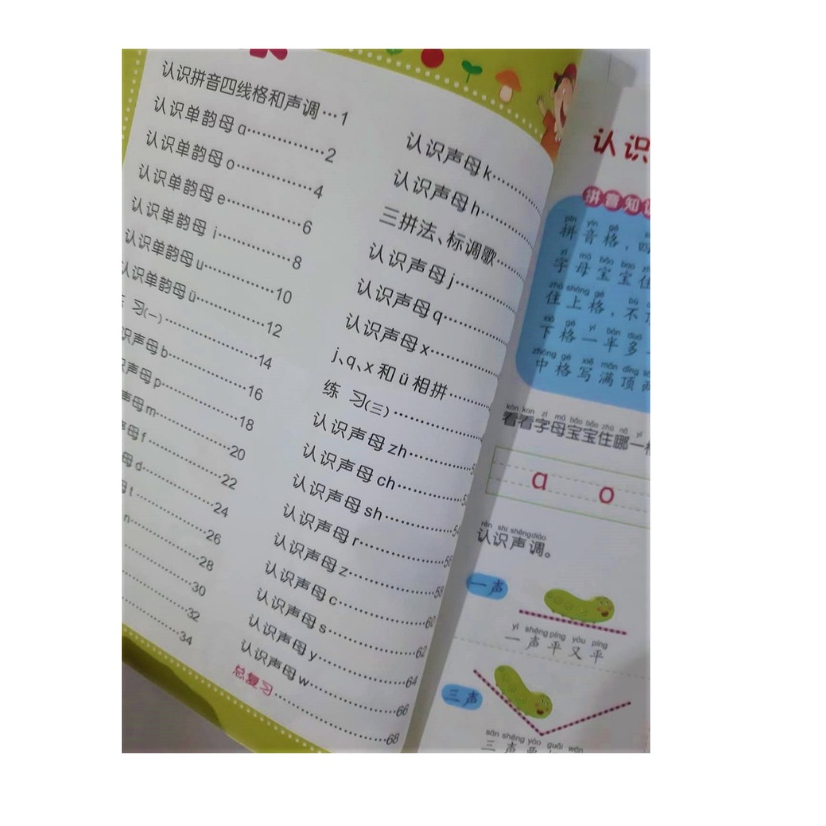 认识拼音四线格和声调…1
认识单韵母ɑ……………2
认识单韵母o……………4
认识单韵母e……………6
认识单韵母i……………8
认识单韵母u……………10
认识单韵母ü……………12
习(一)……………14
识声母b……………16
声母p……………18
母m……………20
母f……………22
d……………24
t……………26
n……………28
……………30
……………32
……………34
认识声母k………
认识声母h………
三拼法、标调歌……
认识声母j………
认识声母q………
认识声母x………
j、q、x和ü相拼……
练 习(三)………
认识声母zh………
认识声母ch………
认识声母sh………
认识声母r………
认识声母z………58
认识声母c………60
认识声母s………62
认识声母y………64
认识声母w………66
总复习………68
认识
拼音知识
pīn yīn gé
拼音格，四
zì mǔ bǎo bao
字母宝宝住
zhù shàng gé
住上格，不
xià gé yí bàn duō
下格一半多
zhōng gé xiě mǎn dǐng
中格写满顶两
kàn kan zì mǔ bǎo bao zhù nǎ yī
看看字母宝宝住哪一格
ɑ o
rèn shi shēng diào
认识声调。
一声
yī shēng píng yòu píng
一声平又平
三声
sān shēng yào guǎi wān
三声